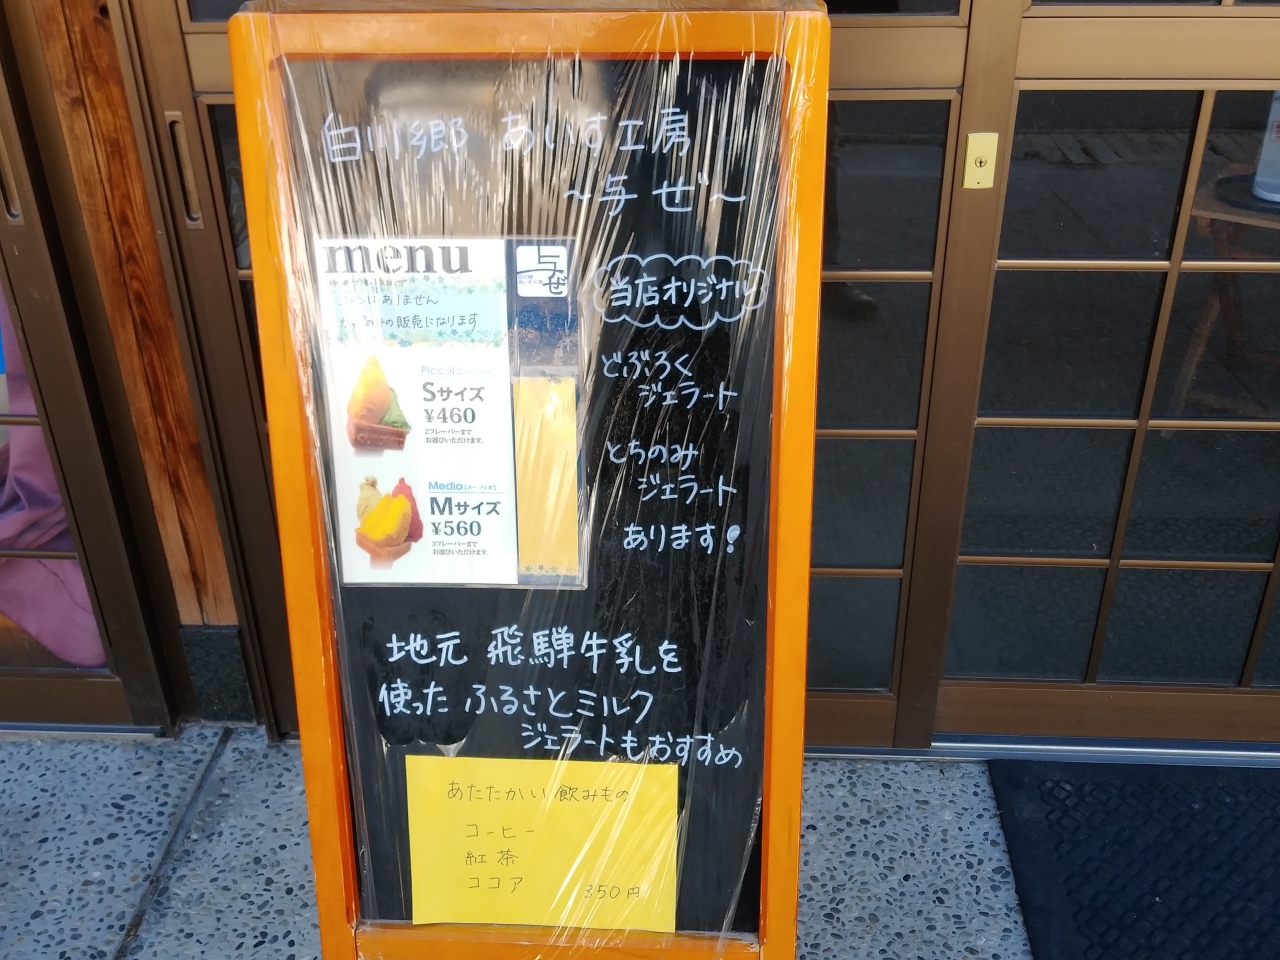 白川郷 あいす工房
～与ぜ～
menu
コーンはありません
カップのみの販売になります
与ぜ
Piccolo
Sサイズ
¥460
2フレーバーまで
お選びいただけます。
Medio[メーディオ]
Mサイズ
¥560
3フレーバーまで
お選びいただけます。
当店オリジナル
どぶろく
ジェラート
とちのみ
ジェラート
あります!
地元 飛騨牛乳を
使った ふるさとミルク
ジェラートもおすすめ
あたたかい飲みもの
コーヒー
紅茶
ココア 350円